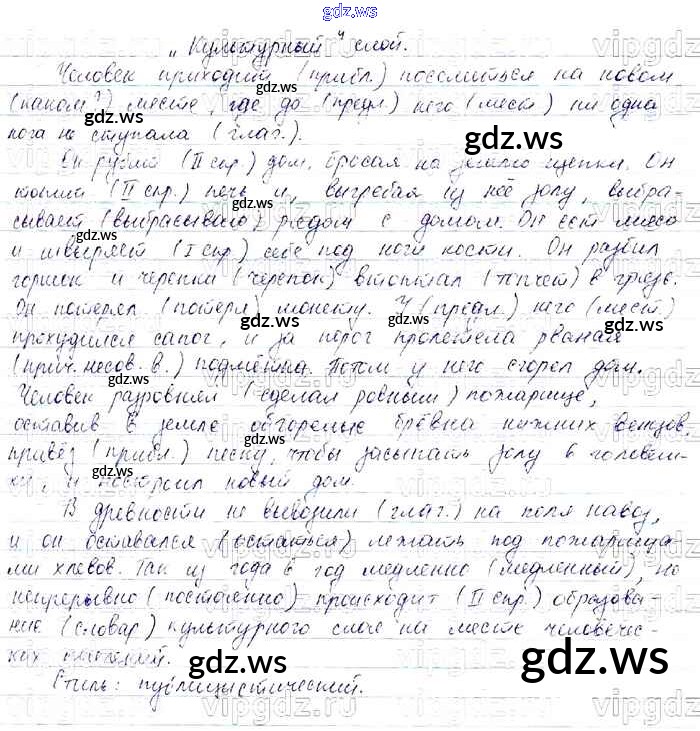 gdz.ws
„Культурный" слой.
Человек приходит (прибл.) поселиться на новом
(каком?) месте, где до (предл.) него (мест) ни одна
нога не ступала (глаг.).
Он рубил (II спр.) дом, бросая на землю щепки. Он
топил (II спр.) печь и, выгребая из неё золу, выбра-
сывает (выбрасываю) рядом с домом. Он ест мясо
и швыряет (I спр.) себе под ноги кости. Он разбил
горшок и черепки (черепок) втоптал (топчет) в грязь.
Он потерял (потеря) монету. У (предл.) него (мест.)
прохудился сапог, и за порог пролетела рваная
(прич. несов. в.) подмётка. Потом у него сгорел дом.
Человек разровнял (сделал ровным) пожарище,
оставив в земле обгорелые брёвна нижних венцов,
привёз (прибл.) песку, чтобы засыпать золу и головеш-
ки, и построил новый дом.
В древности не вывозили (глаг.) на поля навоз,
и он оставался (остаться) лежать под пожарища-
ми хлевов. Так из года в год медленно (медленный), но
непрерывно (постоянно) происходит (II спр.) образова-
ние (словар) культурного слоя на месте человечес-
ких поселений.
Стиль: публицистический.